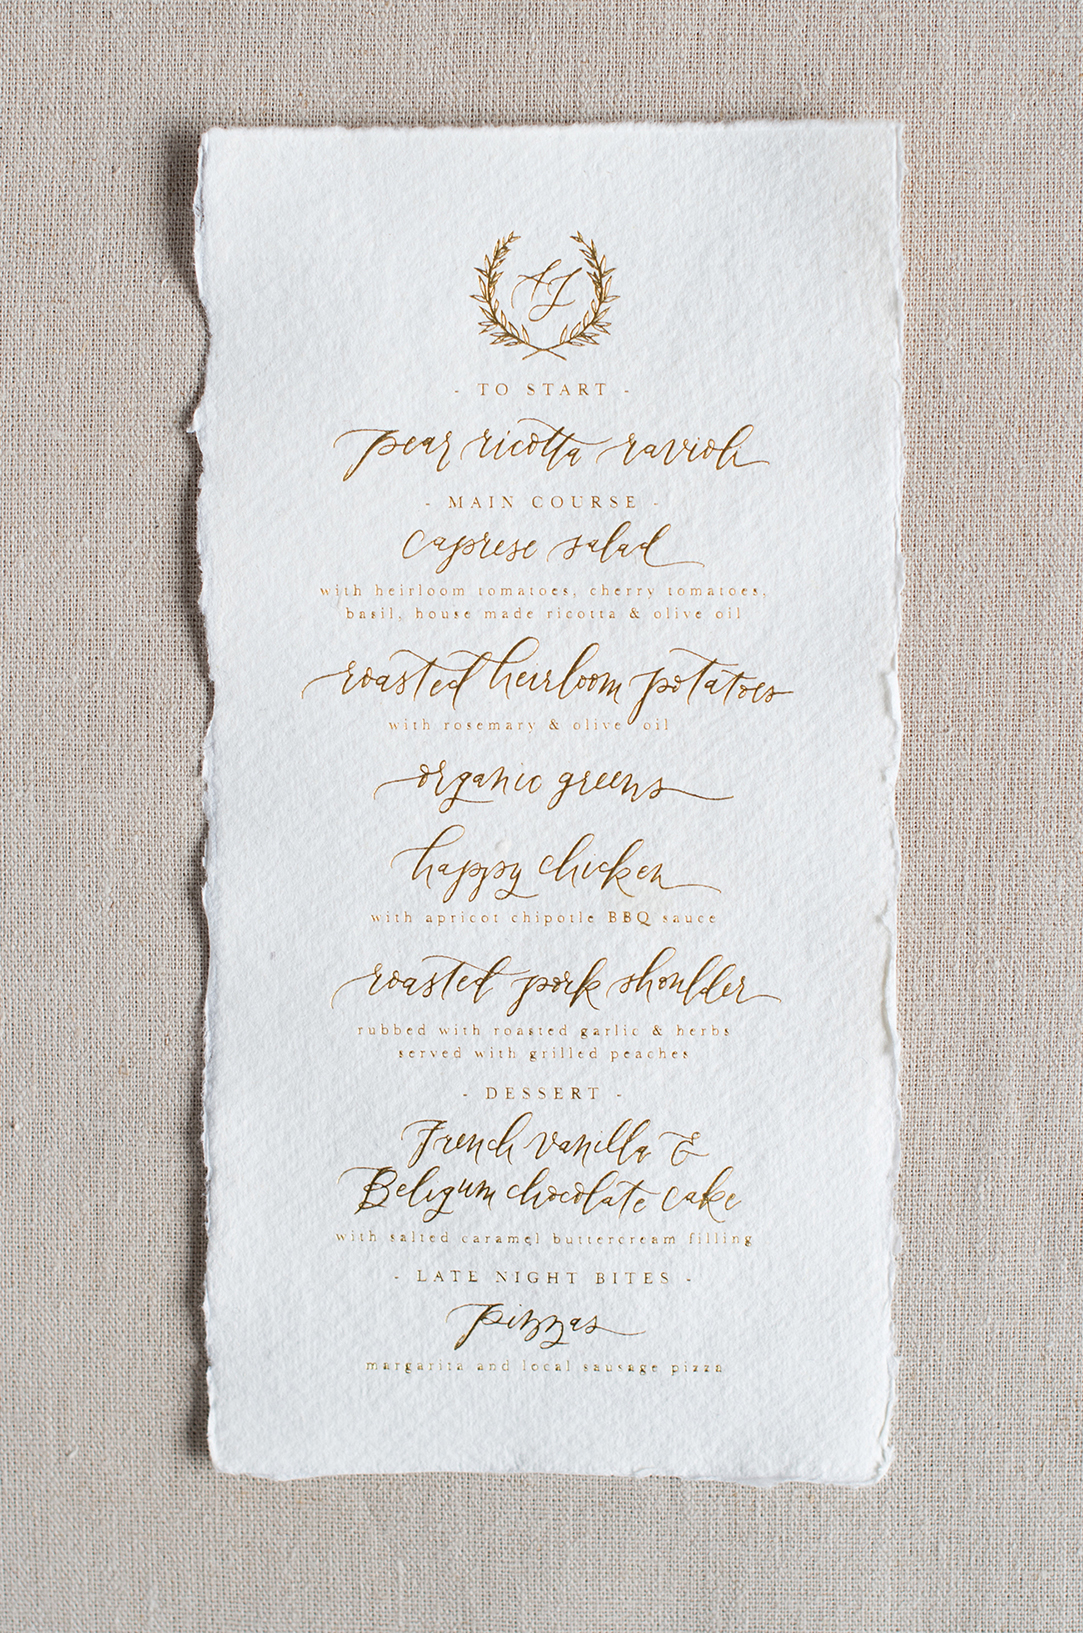 AJ
- TO START -
pear ricotta ravioli
- MAIN COURSE -
caprese salad
with heirloom tomatoes, cherry tomatoes,
basil, house made ricotta & olive oil
roasted heirloom potatoes
with rosemary & olive oil
organic greens
happy chicken
with apricot chipotle BBQ sauce
roasted pork shoulder
rubbed with roasted garlic & herbs
served with grilled peaches
- DESSERT -
French vanilla &
Beligum chocolate cake
with salted caramel buttercream filling
- LATE NIGHT BITES -
pizzas
margarita and local sausage pizza